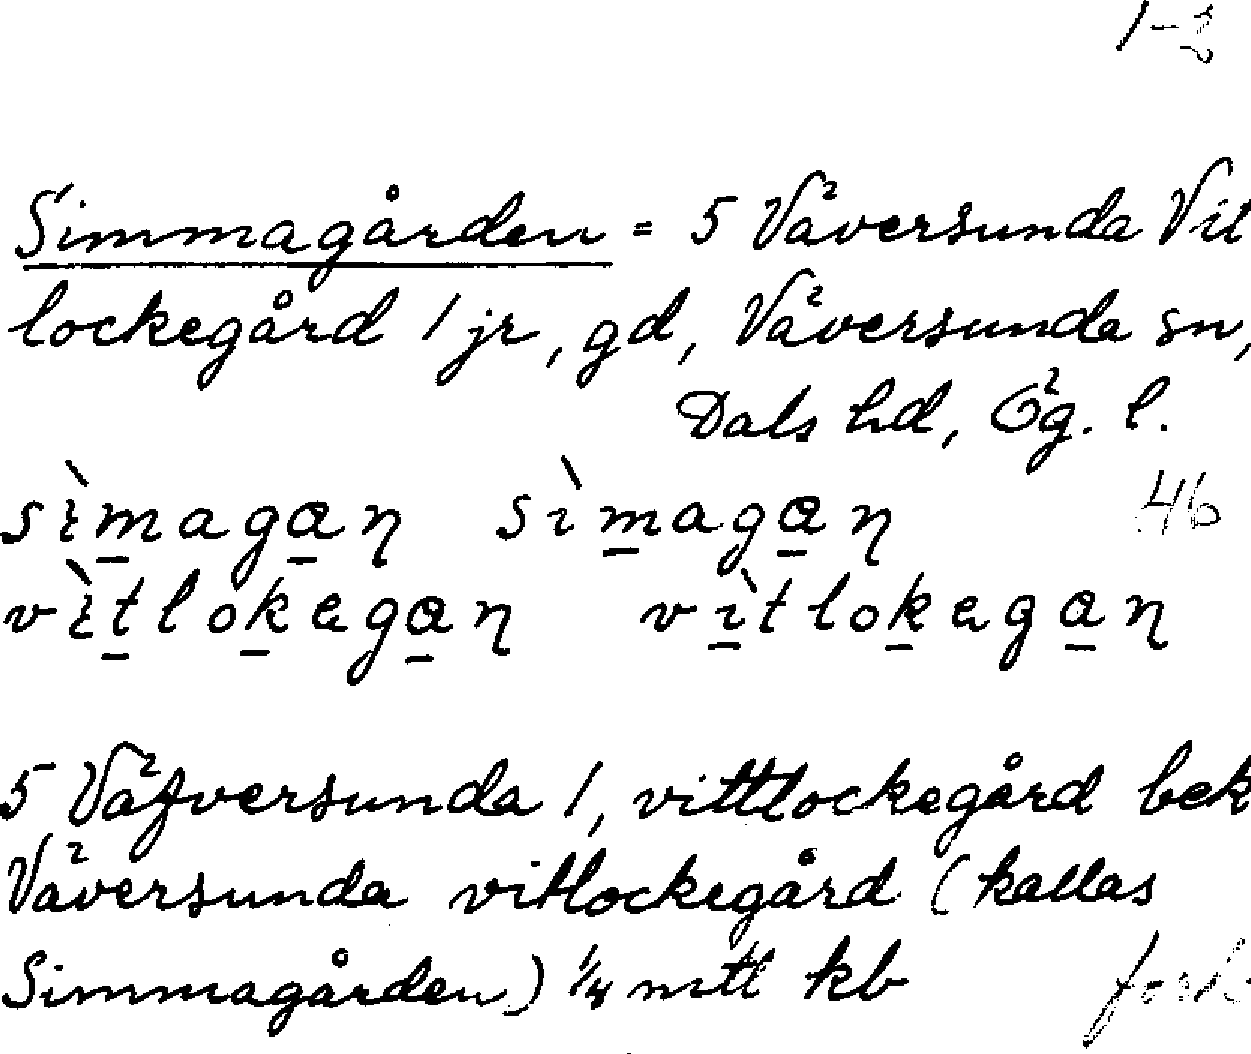 1-2
Simmagården = 5 Väversunda Vit
lockegård 1 jr, gd, Väversunda sn,
Dals hd, Ög. l.
sìmagan̩ sìmagan̩ 46
vìtlokegan̩ vìtlokegan̩
5 Väfversunda 1, vittlockegård bek
Väversunda vitlockegård (kallas
Simmagården) ¼ mtl kb